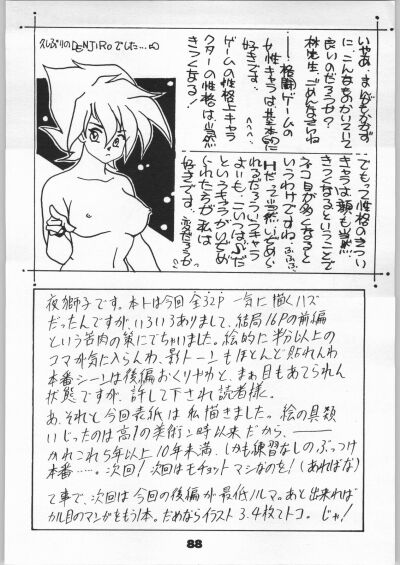 久しぶりのDENJIROでした…∞
いやあ、ま
に、こんなものかいていて
良いのだろうか?
林先生、ごめんなさいね
…格闘ゲームの
女性キャラは基本的に
好きです。
ゲームの性格上キャラ
クターの性格は当然
きつくなる!
でもって性格のきつい
キャラは顔も当然
きつくなるということで
ネコ目がめくなると
いうわけですね。
というキャラがいじめ
られたろうが私は
好きです。変だろうか
夜獅子です。本トは今回全32P 一気に描くハズ
だったんですが、いろいろありまして、結局16Pの前編
という苦肉の策にでちゃいました。絵的に半分以上の
コマが気に入らんわ、影トーンもほとんど貼れんわ
本番シーンは後編おくりやわと、まぁ目もあてられん
状態ですが、許して下され読者様。
あ、それと今回表紙は私描きました。絵の具類
いじったのは高1の美術ン時以来だから、――
かれこれ5年以上10年未満、しかも練習なしのぶっつけ
本番……。次回!次回はモチョットマシなのを!(あればな)
て事で、次回は今回の後編が最低ノルマ。あと出来れば
カル目のマンガをもう1本。だめならイラスト3.4枚てトコ。じゃ!
88